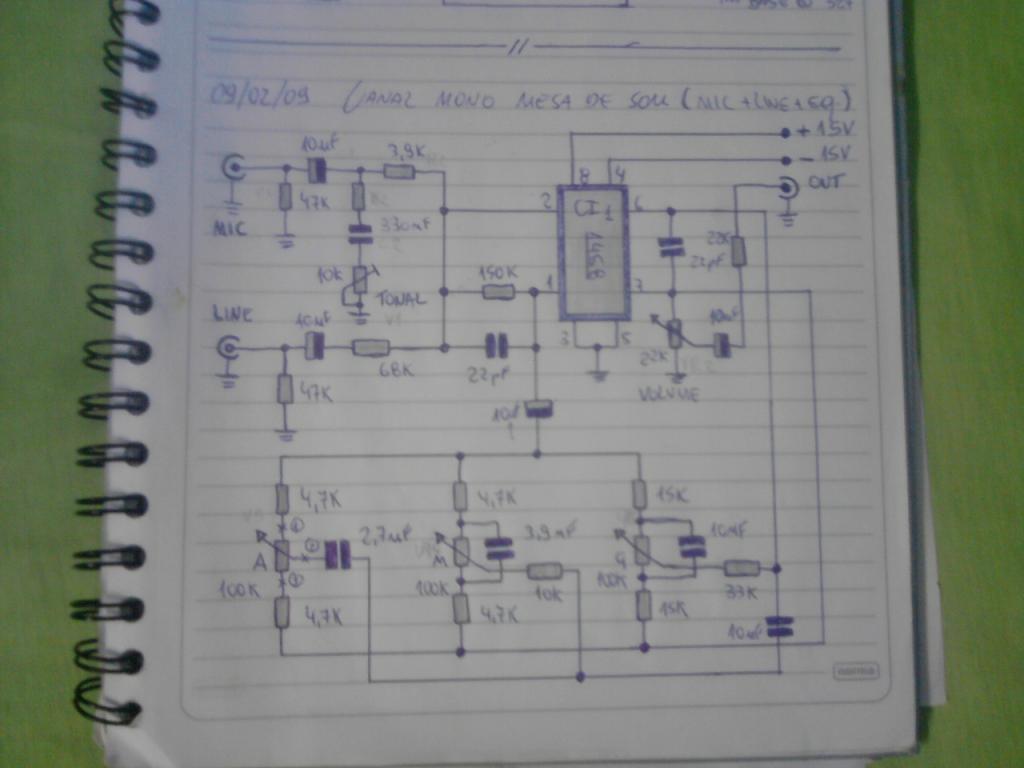 BASE DO 527
09/02/09 CANAL MONO MESA DE SOM (MIC+LINE+EQ)
+15V
-15V
10µF
3,9K
OUT
8
4
47K
2
CI1
6
MIC
330nF
1458
22K
22pF
10K
TONAL
150K
1
7
LINE
10µF
10µF
3
5
22K
68K
22pF
47K
VOLUME
10µF
4,7K
4,7K
15K
2,7nF
3,9nF
10nF
A
M
G
100K
100K
100K
10K
33K
4,7K
4,7K
15K
10nF
norma